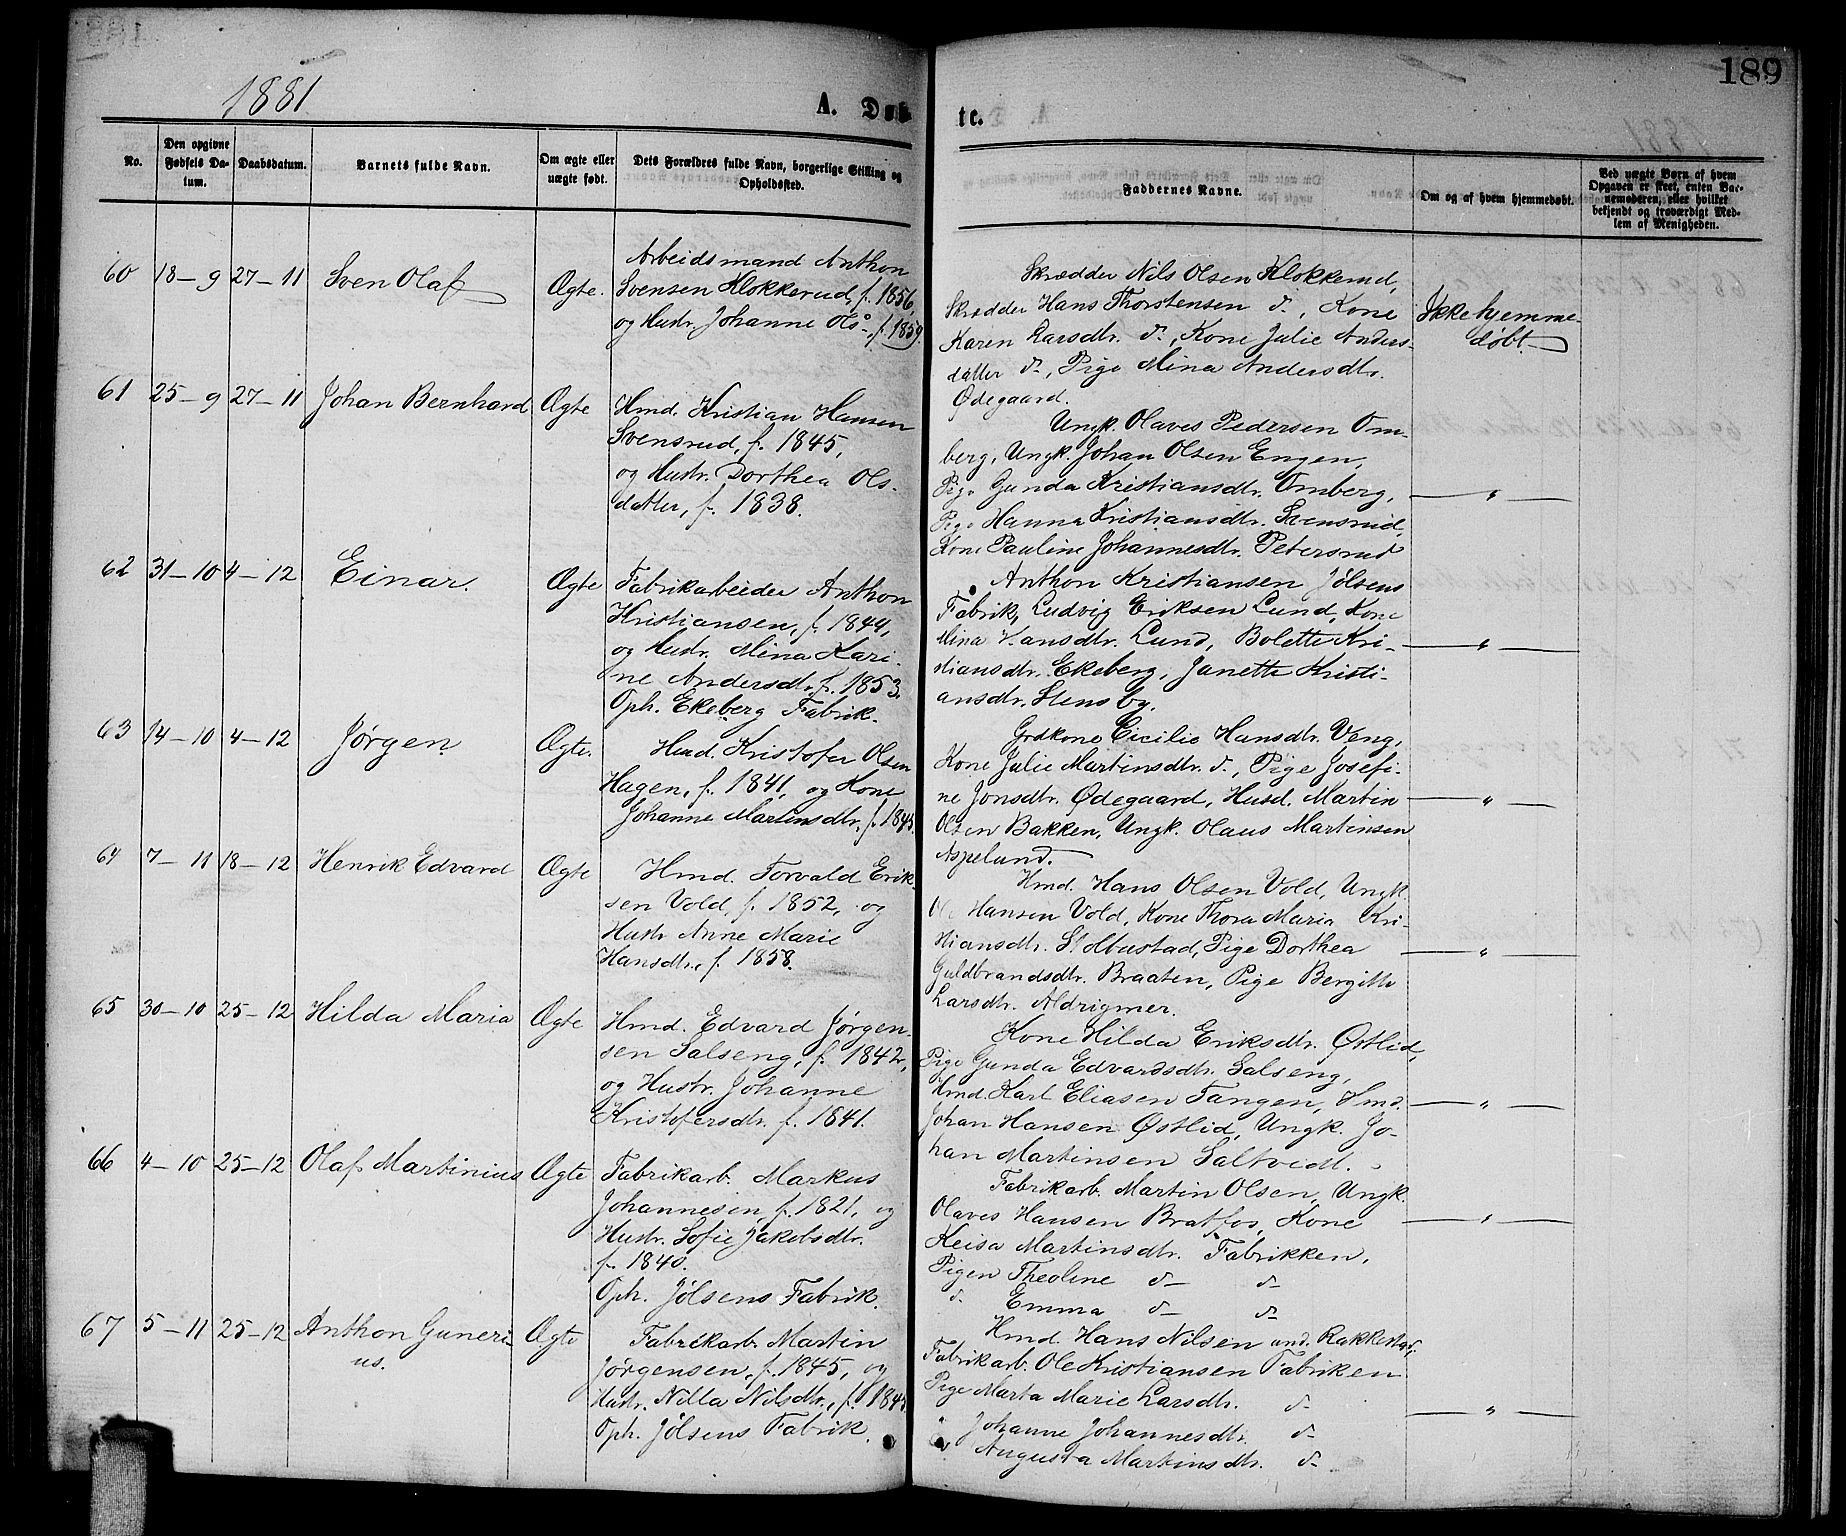 1881
A. Døb
te.
189
No.
Den opgivne Fødsels Da-
tum.
Daabsdatum.
Barnets fulde Navn.
Om ægte eller
uægte født.
Dets Forældres fulde Navn, borgerlige Stilling og
Opholdssted.
Faddernes Navne.
Om og af hvem hjemmedøbt.
Ved uægte Børn af hvem
Opgaven er skeet, enten Bar-
nemoderen, eller hvilket
bekjendt og troværdigt Med-
lem af Menigheden.
60 18-9 27-11 Sven Olaf Ægte.
Arbeidsmand Anthon
Svensen Klokkerud, f. 1856,
og Hustr. Johanne Ols- f. 1859.
Skrædder Nils Olsen Klokkerud,
Skrædder Hans Thorstensen d-, Kone
Karen Larsdtr. d-, Kone Julie Anders-
datter d-, Pige Mina Andersdtr.
Ødegaard.
Ikke hjemme-
døbt.
61 25-9 27-11 Johan Bernhard Ægte
Hmd. Kristian Hansen
Svensrud, f. 1845,
og Hustr. Dorthea Ols-
datter, f. 1838.
Ungk. Olaves Pedersen Om-
berg, Ungk. Johan Olsen Engen,
Pige Gunda Kristiansdtr. Omberg,
Pige Hanna Kristiansdtr. Svensrud,
Kone Pauline Johannesdtr. Petersrud
— " —
62 31-10 4-12 Einar. Ægte
Fabrikarbeider Anthon
Kristiansen, f. 1844,
og Hustr. Mina Kari-
ne Andersdtr. f. 1853.
Oph. Ekeberg Fabrik.
Anthon Kristiansen Jølsens
Fabrik, Ludvig Eriksen Lund, Kone
Mina Hansdtr. Lund, Bolette Kri-
stiansdtr. Ekeberg, Janette Kristi-
ansdtr. Stensby.
— " —
63 14-10 4-12 Jørgen Ægte.
Hmd. Kristofer Olsen
Hagen, f. 1841, og Kone
Johanne Martinsdtr, f. 1845.
Grdkone Cicilie Hansdtr. Veng,
Kone Julie Martinsdtr. d-, Pige Josefi-
ne Jonsdtr. Ødegaard, Husd. Martin
Olsen Bakken, Ungk. Olaus Martinsen
Aspelund.
— " —
64 7-11 18-12 Henrik Edvard Ægte
Hmd. Torvald Erik-
sen Vold, f. 1852, og
Hustr Anne Marie
Hansdtr, f. 1858.
Hmd. Hans Olsen Vold, Ungk.
Ole Hansen Vold, Kone Thora Maria Kri-
stiansdtr. Pige Dorthea
Guldbrandsdtr. Braaten, Pige Bergitte
Larsdtr. Aldrigmer.
— " —
65 30-10 25-12 Hilda Maria Ægte
Hmd. Edvard Jørgen-
sen Salseng, f. 1842,
og Hustr. Johanne
Kristofersdtr. f. 1841.
Kone Hilda Eriksdtr. Østlid,
Pige Gunda Edvardsdtr. Salseng,
Hmd. Karl Eliasen Tangen, Hmd.
Johan Hansen Østlid, Ungk. Jo-
han Martinsen Saltvedt.
— " —
66 4-10 25-12 Olaf Martinius Ægte
Fabrikarb. Markus
Johannesen, f. 1821, og
Hustr. Sofie Jakobsdtr.
f. 1840.
Oph. Jølsens Fabrik.
Fabrikarb. Martin Olsen, Ungk.
Olaves Hansen Bratfos, Kone
Martinsdtr. Fabrikken,
Pigen Theoline d- d-
d. Emma d- d-
— " —
67 5-11 25-12 Anthon Guneri-
us. Ægte
Fabrikarb. Martin
Jørgensen, f. 1845, og
Hustr. Nilla Nilsdtr., f.
Oph. Jølsens Fabrik.
Hmd. Hans Nilsen und. Rakkestad,
Fabrikarb. Ole Kristiansen Fabriken
Pige Marta Marie Larsdtr. d-
" Johanne Johannesdtr. d-
" Augusta Martinsdtr. d-
— " —